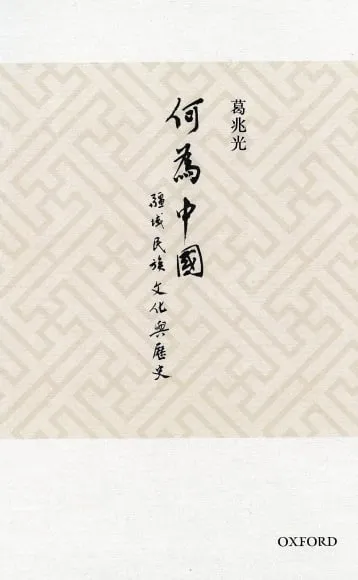 葛兆光
何為中國
疆域民族文化與歷史
OXFORD